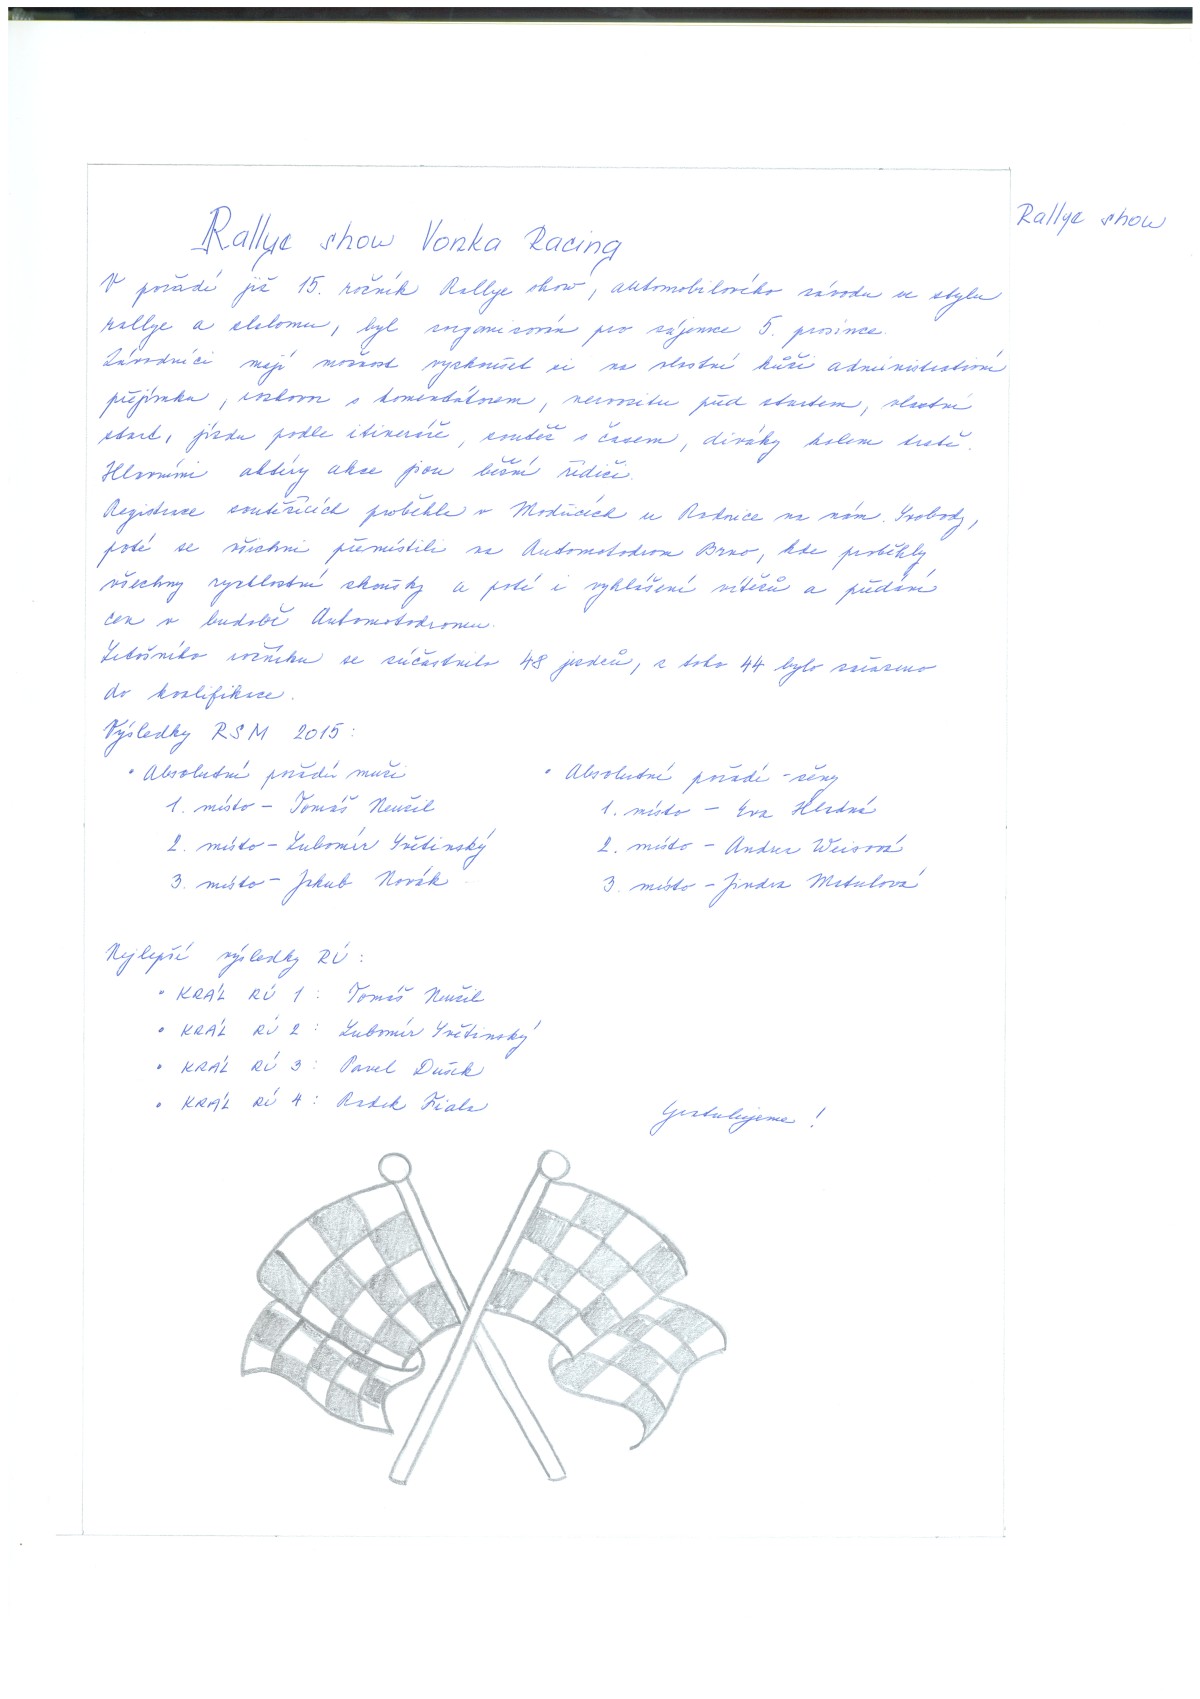 Rallye show
Rallye show Vonka Racing
V pořadí již 15. ročník Rallye show, automobilového závodu ve stylu
rallye a slalomu, byl zorganisován pro zájemce 5. prosince.
Závodníci mají možnost vyzkoušet si na vlastní kůži administrativní
přejímku, rozhovor s komentátorem, nervozitu před startem, vlastní
start, jízdu podle itineráře, soutěž s časem, diváky kolem tratě.
Hlavními aktéry akce jsou běžní řidiči.
Registrace soutěžících proběhla v Modřicích u Radnice na nám. Svobody,
poté se všichni přemístili na Automotodrom Brno, kde proběhly
všechny rychlostní zkoušky a poté i vyhlášení vítězů a předání
cen v budově Automotodromu.
Letošního ročníku se zúčastnilo 48 jezdců, z toho 44 bylo zařazeno
do kvalifikace.
Výsledky RSM 2015:
• Absolutní pořadí muži
1. místo – Tomáš Neužil
2. místo – Lubomír Světinský
3. místo – Jakub Novák
• Absolutní pořadí – ženy
1. místo – Eva Hladná
2. místo – Andrea Weisová
3. místo – Jindra Matulová
Nejlepší výsledky RÚ:
• KRÁL RÚ 1: Tomáš Neužil
• KRÁL RÚ 2: Lubomír Světinský
• KRÁL RÚ 3: Pavel Dušek
• KRÁL RÚ 4: Radek Fiala
Gratulujeme!